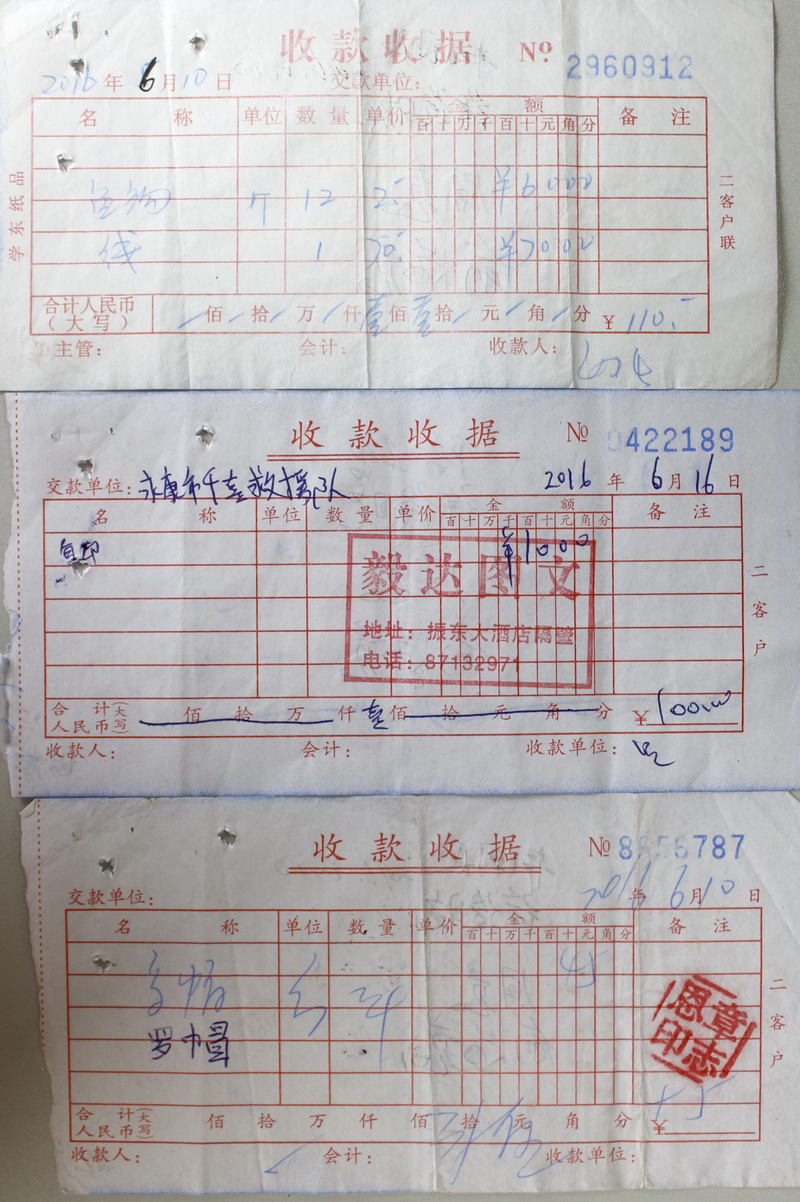 收款收据 No 2960912
2016年6月10日 交款单位:
名称 单位 数量 单价 金额 备注
百十万千百十元角分
12 2.- ¥6000
线 1 70.- ¥7000
合计人民币(大写) 佰 拾 万 仟 壹佰 壹拾 元 角 分 ¥110.-
主管: 会计: 收款人:
学东纸品
二客户联
收款收据 No 9422189
交款单位:永康市千喜救援队 2016年6月16日
名称 单位 数量 单价 金额 备注
百十万千百十元角分
复印 ¥10000
毅达图文
地址:振东大酒店隔壁
电话:87132971
合计人民币(大写) 佰 拾 万 仟 壹佰 拾 元 角 分 ¥100.00
收款人: 会计: 收款单位:
二客户
收款收据 No 8856787
交款单位: 2016年6月10日
名称 单位 数量 单价 金额 备注
百十万千百十元角分
45
罗巾冒
章志恩印
合计人民币(大写) 佰 拾 万 仟 佰 拾 元 角 分 ¥
收款人: 会计: 收款单位:
二客户